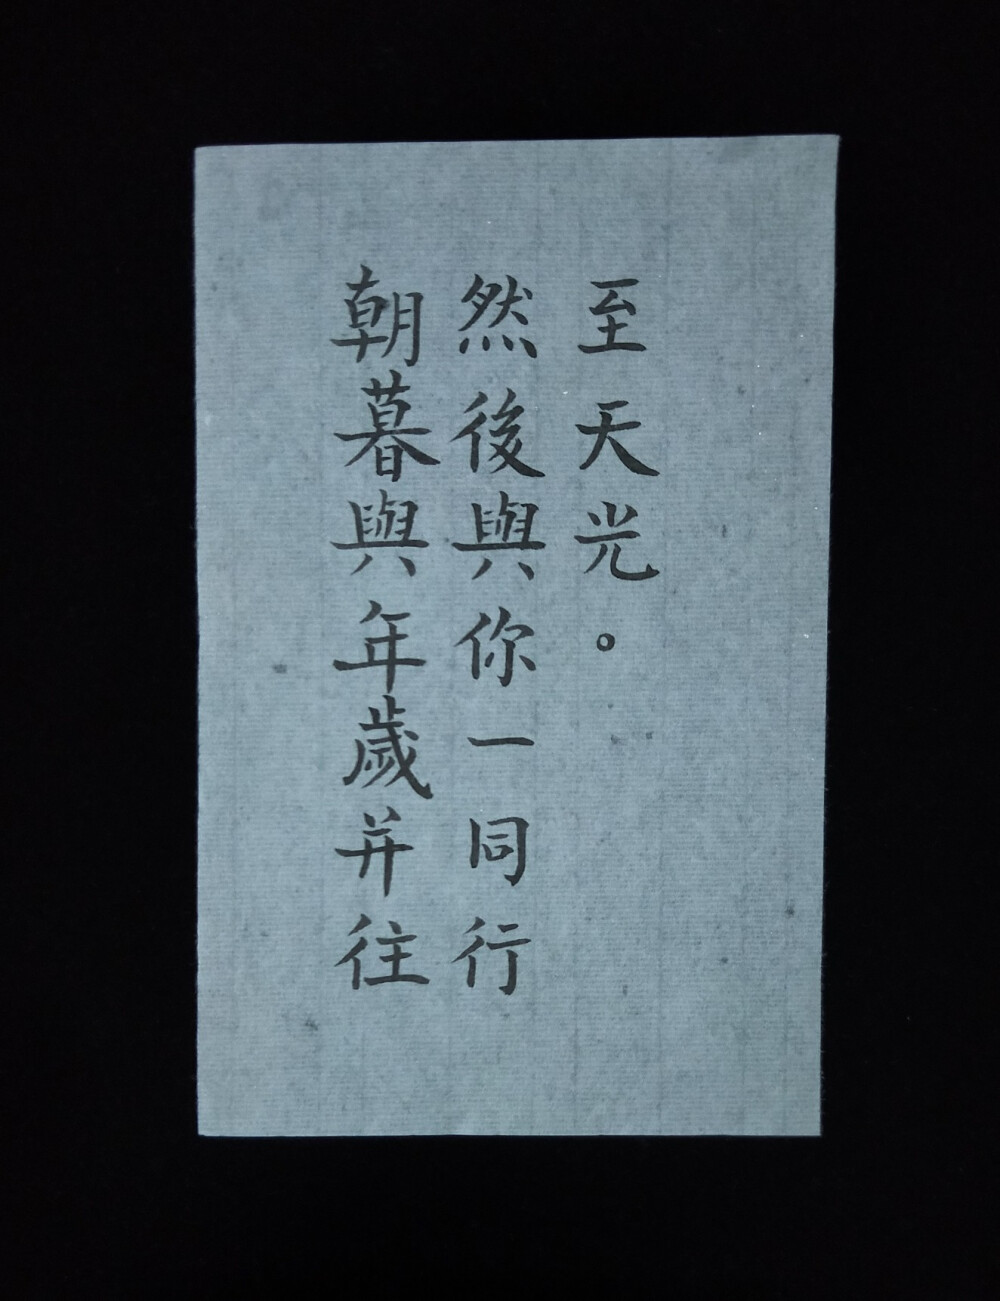 朝暮與年歲并往
然後與你一同行
至天光。